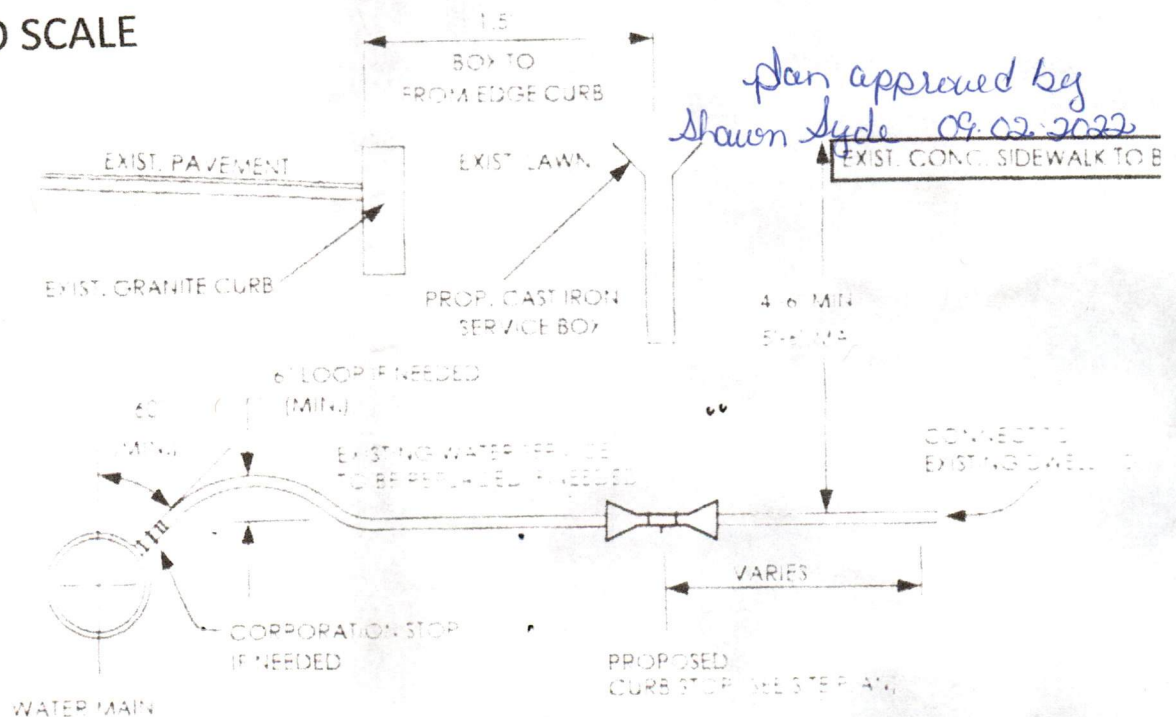 SCALE
1.5
BOX TO
FROM EDGE CURB
plan approved by
Shawn Syde 09.02.2022
EXIST. PAVEMENT
EXIST. LAWN
EXIST. CONC. SIDEWALK TO B
EXIST. GRANITE CURB
PROP. CAST IRON
SERVICE BOX
MIN
6" LOOP IF NEEDED
(MIN.)
60
(MIN.)
EXISTING WATER SERVICE
TO BE REPLACED IF NEEDED
CONNECT TO
EXISTING DWELL
VARIES
CORPORATION STOP
IF NEEDED
PROPOSED
CURB STOP (SEE SITE PLAN)
WATER MAIN